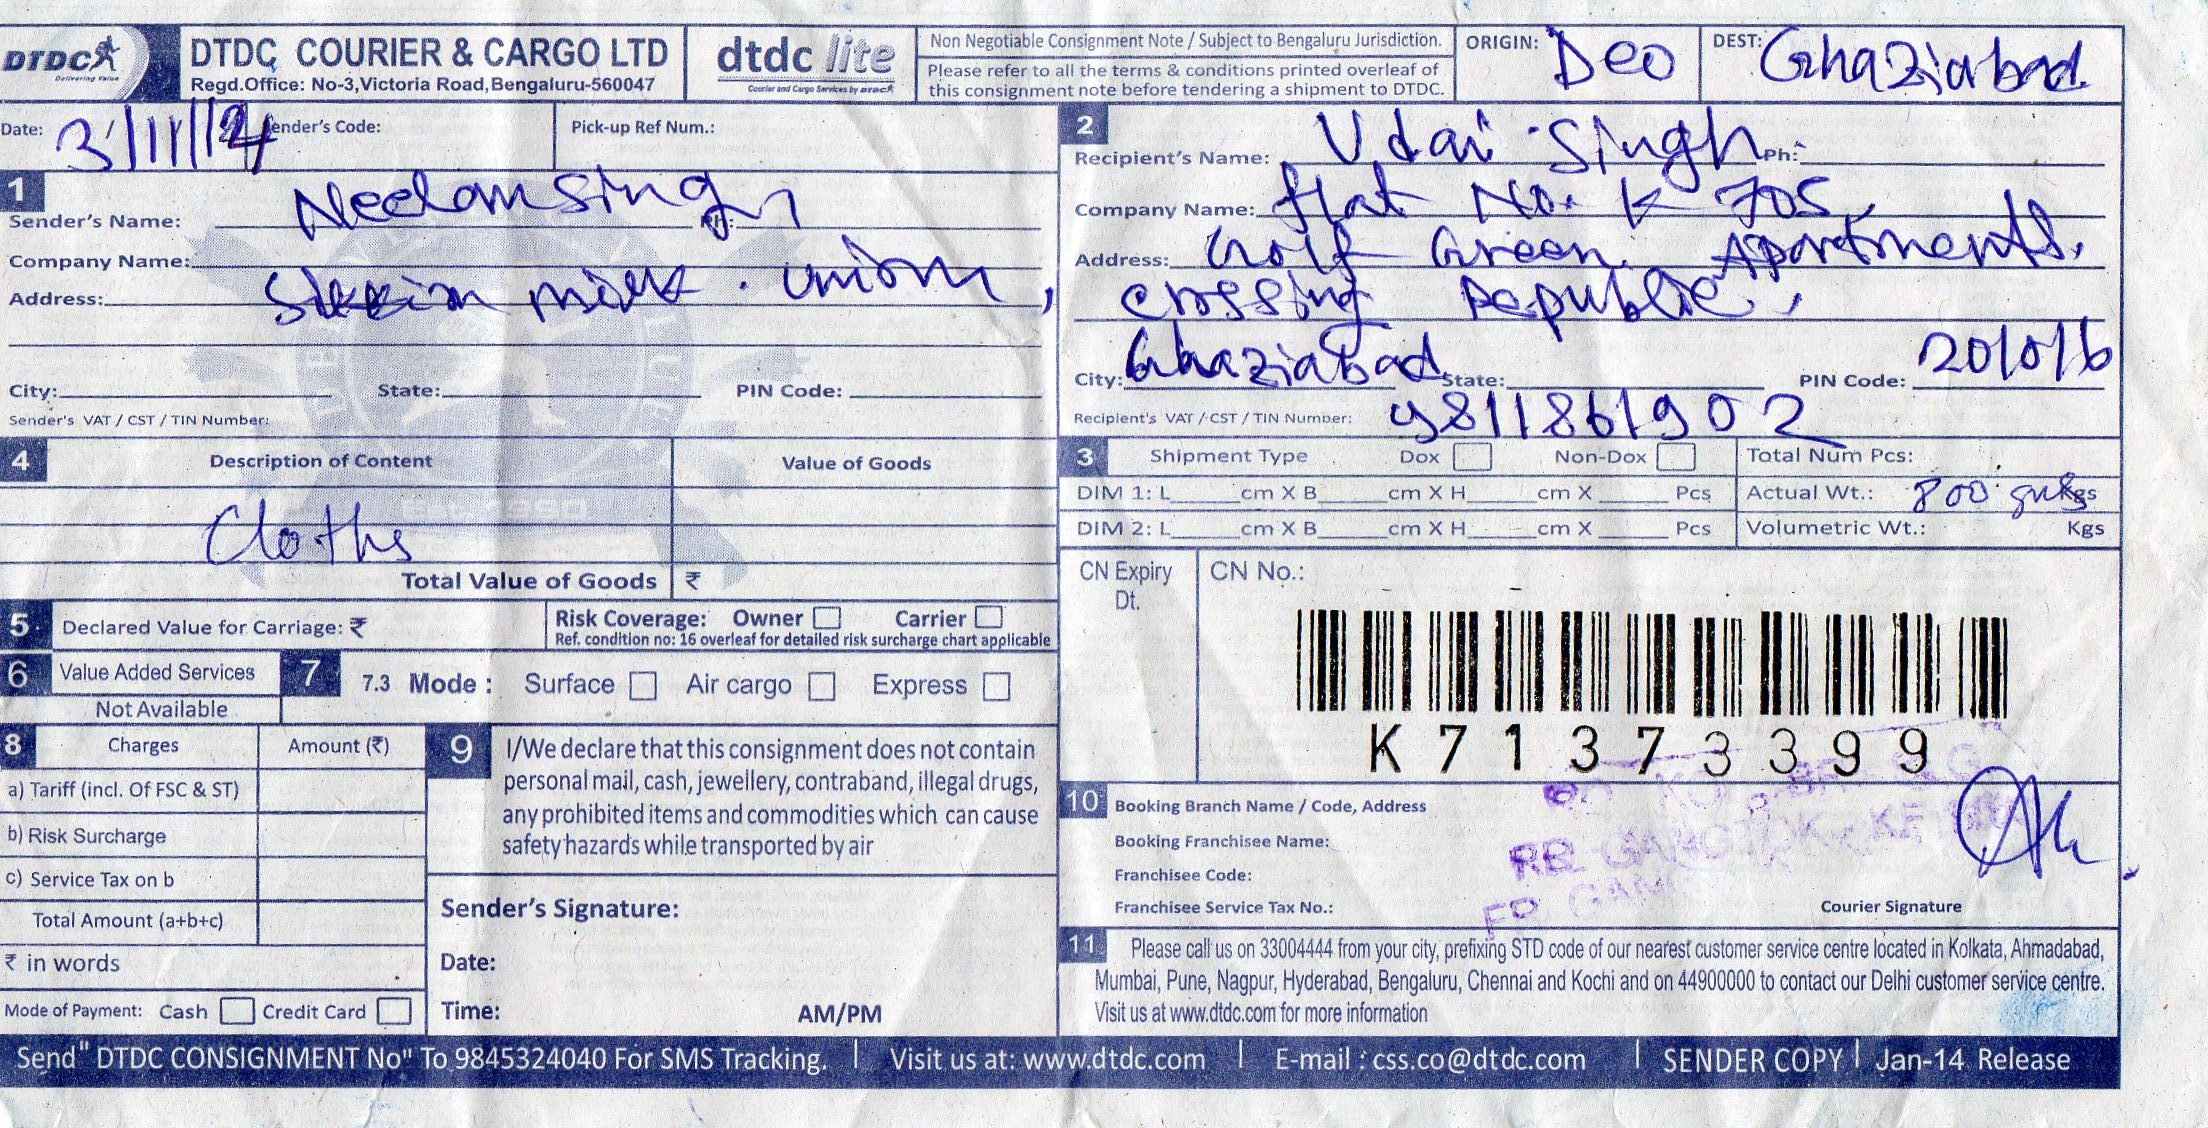 DTDC
Delivering Value
DTDC COURIER & CARGO LTD
Regd.Office: No-3,Victoria Road,Bengaluru-560047
dtdc lite
Courier and Cargo Services by DTDC
Non Negotiable Consignment Note / Subject to Bengaluru Jurisdiction.
Please refer to all the terms & conditions printed overleaf of
this consignment note before tendering a shipment to DTDC.
ORIGIN: Deo
DEST: Ghaziabad
Date: 3/11/14
Sender's Code:
Pick-up Ref Num.:
1
Sender's Name: Neelam Singh
Ph:
Company Name:
Address: Sikkim milk union,
City: State: PIN Code:
Sender's VAT / CST / TIN Number:
2
Recipient's Name: Udai Singh Ph:
Company Name: flat No. K 705,
Address: Golf Green Apartments,
Crossing Republic,
City: Ghaziabad State: PIN Code: 201016
Recipient's VAT / CST / TIN Number: 9811861902
3 Shipment Type Dox Non-Dox Total Num Pcs:
DIM 1: L cm X B cm X H cm X Pcs Actual Wt.: 800 gms Kgs
DIM 2: L cm X B cm X H cm X Pcs Volumetric Wt.: Kgs
4 Description of Content Value of Goods
Cloths
Total Value of Goods ₹
5 Declared Value for Carriage: ₹
Risk Coverage: Owner Carrier
Ref. condition no: 16 overleaf for detailed risk surcharge chart applicable
6 Value Added Services
Not Available
7 7.3 Mode : Surface Air cargo Express
CN Expiry
Dt.
CN No.:
K71373399
8 Charges Amount (₹)
a) Tariff (incl. Of FSC & ST)
b) Risk Surcharge
c) Service Tax on b
Total Amount (a+b+c)
₹ in words
Mode of Payment: Cash Credit Card
9 I/We declare that this consignment does not contain
personal mail, cash, jewellery, contraband, illegal drugs,
any prohibited items and commodities which can cause
safety hazards while transported by air
Sender's Signature:
Date:
Time: AM/PM
10 Booking Branch Name / Code, Address
Booking Franchisee Name:
Franchisee Code:
Franchisee Service Tax No.:
GANGTOK
Courier Signature
11 Please call us on 33004444 from your city, prefixing STD code of our nearest customer service centre located in Kolkata, Ahmadabad,
Mumbai, Pune, Nagpur, Hyderabad, Bengaluru, Chennai and Kochi and on 44900000 to contact our Delhi customer service centre.
Visit us at www.dtdc.com for more information
Send" DTDC CONSIGNMENT No" To 9845324040 For SMS Tracking. | Visit us at: www.dtdc.com | E-mail : css.co@dtdc.com | SENDER COPY | Jan-14 Release